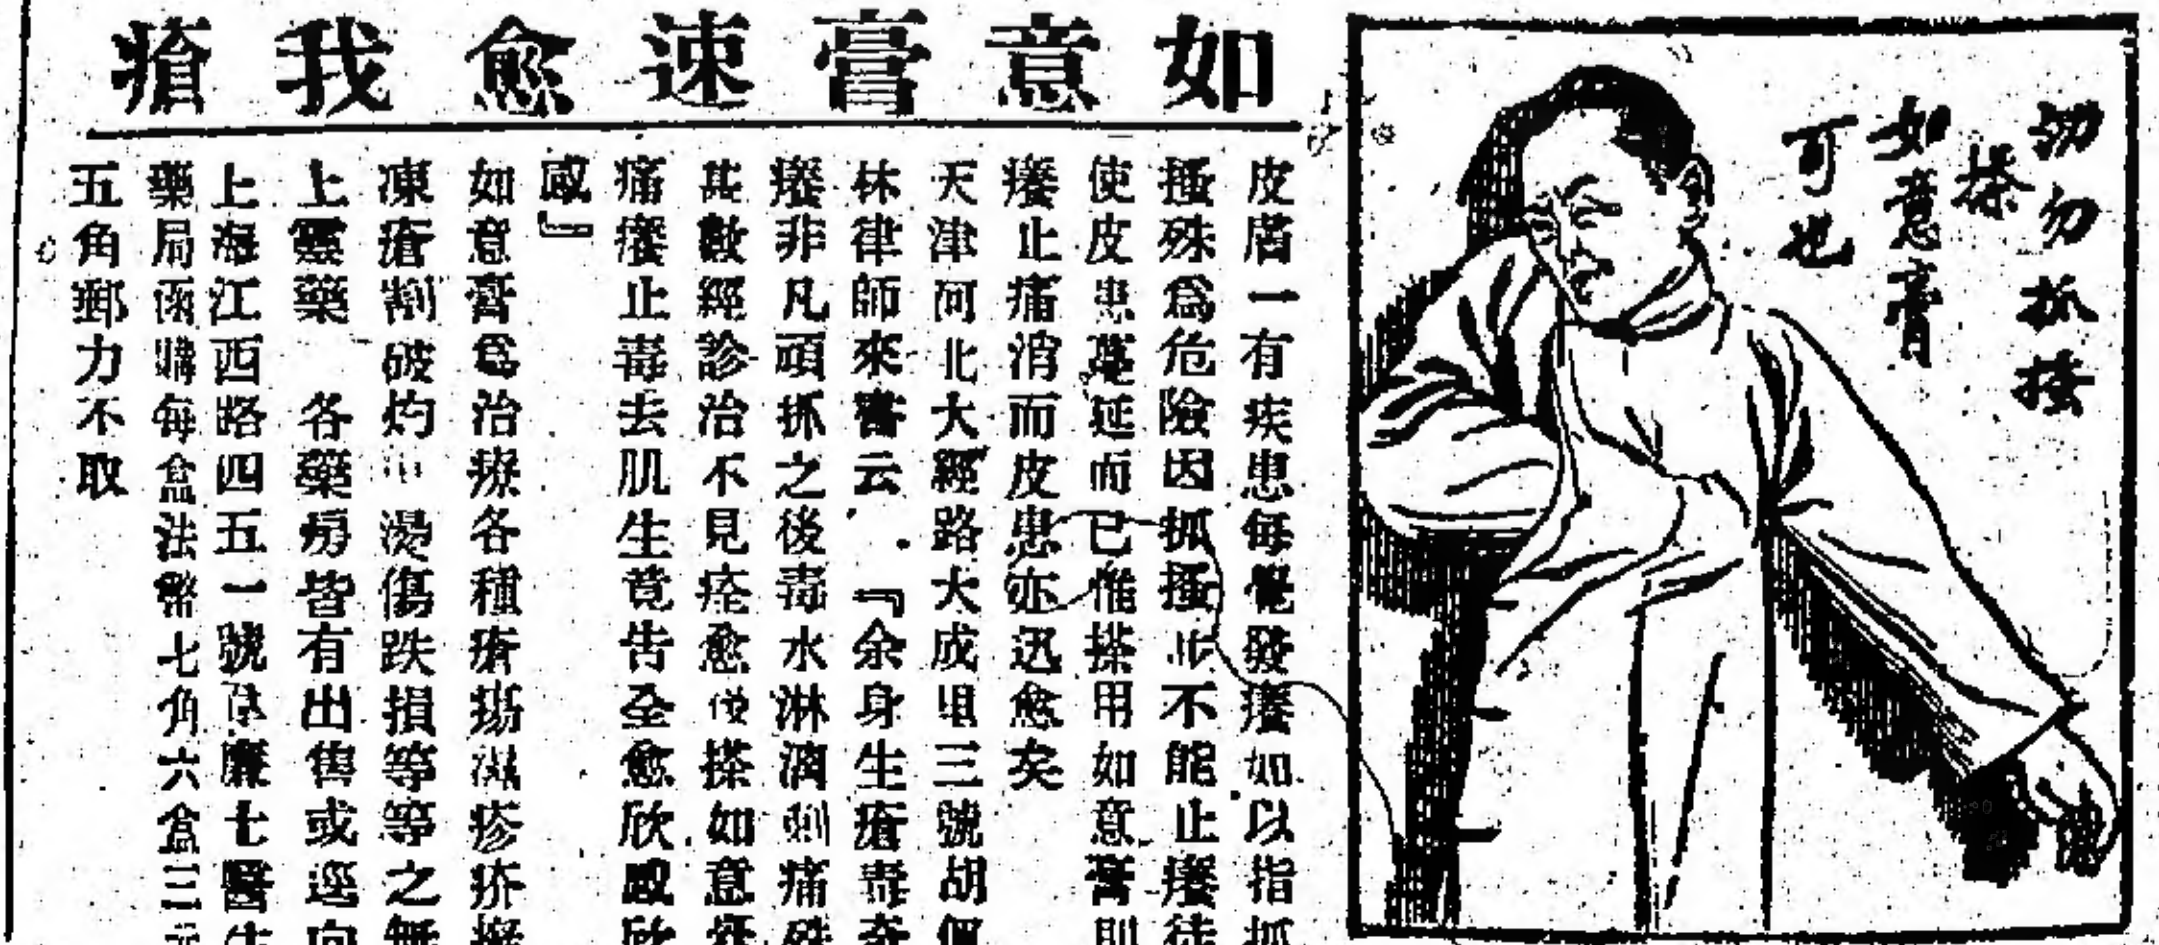 如意膏速愈我瘡
勿勿抓搔
搽
如意膏
可也
皮膚一有疾患每覺發癢如以指抓
搔殊為危險因抓搔止不能止癢徒
使皮患蔓延而已惟搽用如意膏則
癢止痛消而皮患亦迅愈矣
天津河北大經路大成里三號胡佩
林律師來書云『余身生瘡毒奇
癢非凡頑抓之後毒水淋漓刺痛殊
甚數經診治不見痊愈後搽如意膏
痛癢止毒去肌生竟告全愈欣感欣
感』
如意膏為治療各種瘡瘍濕疹疥癬
凍瘡割破灼 燙傷跌損等等之無
上靈藥　各藥房皆有出售或逕向
上海江西路四五一號韋廉士醫生
藥局函購每盒法幣七角六盒三元
五角郵力不取